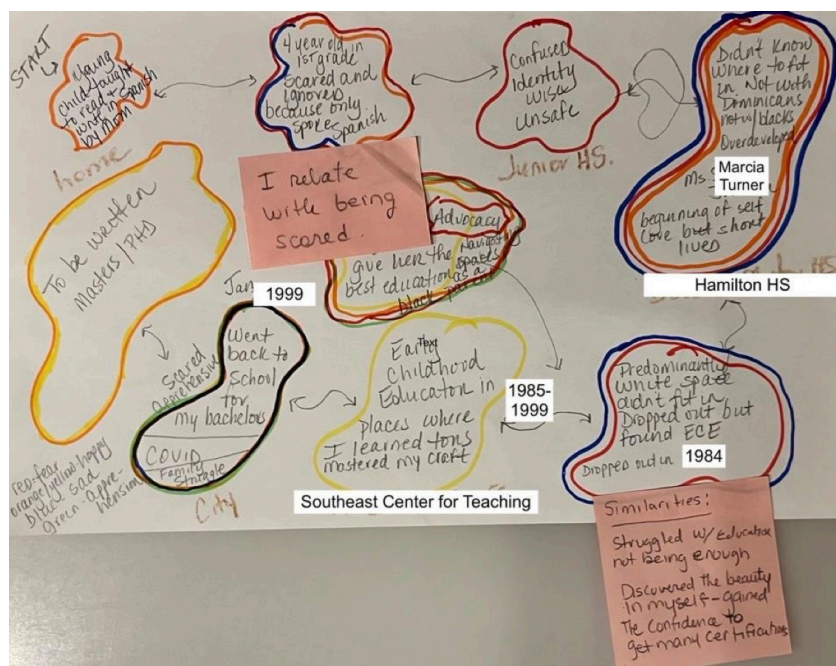 START
Young
child taught
to read +
write in Spanish
by mom
home
4 year old in
1st grade
Scared and
ignored
because only
spoke
Spanish
Confused
Identity
wise
unsafe
Junior HS.
Didn't Know
where to fit
in. Not with
Dominicans
not w/blacks
Overdeveloped
Ms.
Marcia
Turner
beginning of self
love but short
lived
Hamilton HS
I relate
with being
scared.
Advocacy
give her the
best education
Navigating
spaces
as a
black parent
To be written
Masters/PHD
Jan
1999
Went
back to
School
for
my bachelors
COVID
Family
Struggle
City
Scared
apprehensive
red-fear
orange/yellow happy
blue sad
green-appre-
hension
Early
Text
Childhood
Education in
places where
I learned tons
mastered my craft
1985-
1999
Southeast Center for Teaching
Predominantly
white space
didn't fit in
Dropped out but
found ECE
Dropped out in 1984
Similarities:
Struggled w/Education
not being enough
Discovered the beauty
in myself-gained
The confidence to
get many certifications